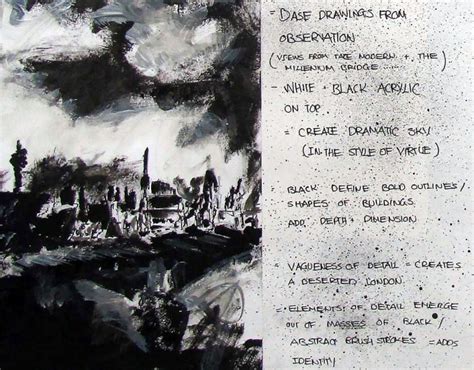 = BASE DRAWINGS FROM
OBSERVATION
(VIEWS FROM TATE MODERN + THE
MILLENIUM BRIDGE....)
- WHITE + BLACK ACRYLIC
ON TOP
= CREATE DRAMATIC SKY
(IN THE STYLE OF VIRTUE)
= BLACK DEFINE BOLD OUTLINES/
SHAPES OF BUILDINGS
ADD DEPTH + DIMENSION
= VAGUENESS OF DETAIL = CREATES
A DESERTED LONDON.
= ELEMENTS OF DETAIL EMERGE
OUT OF MASSES OF BLACK/
ABSTRACT BRUSH STROKES = ADDS
IDENTITY